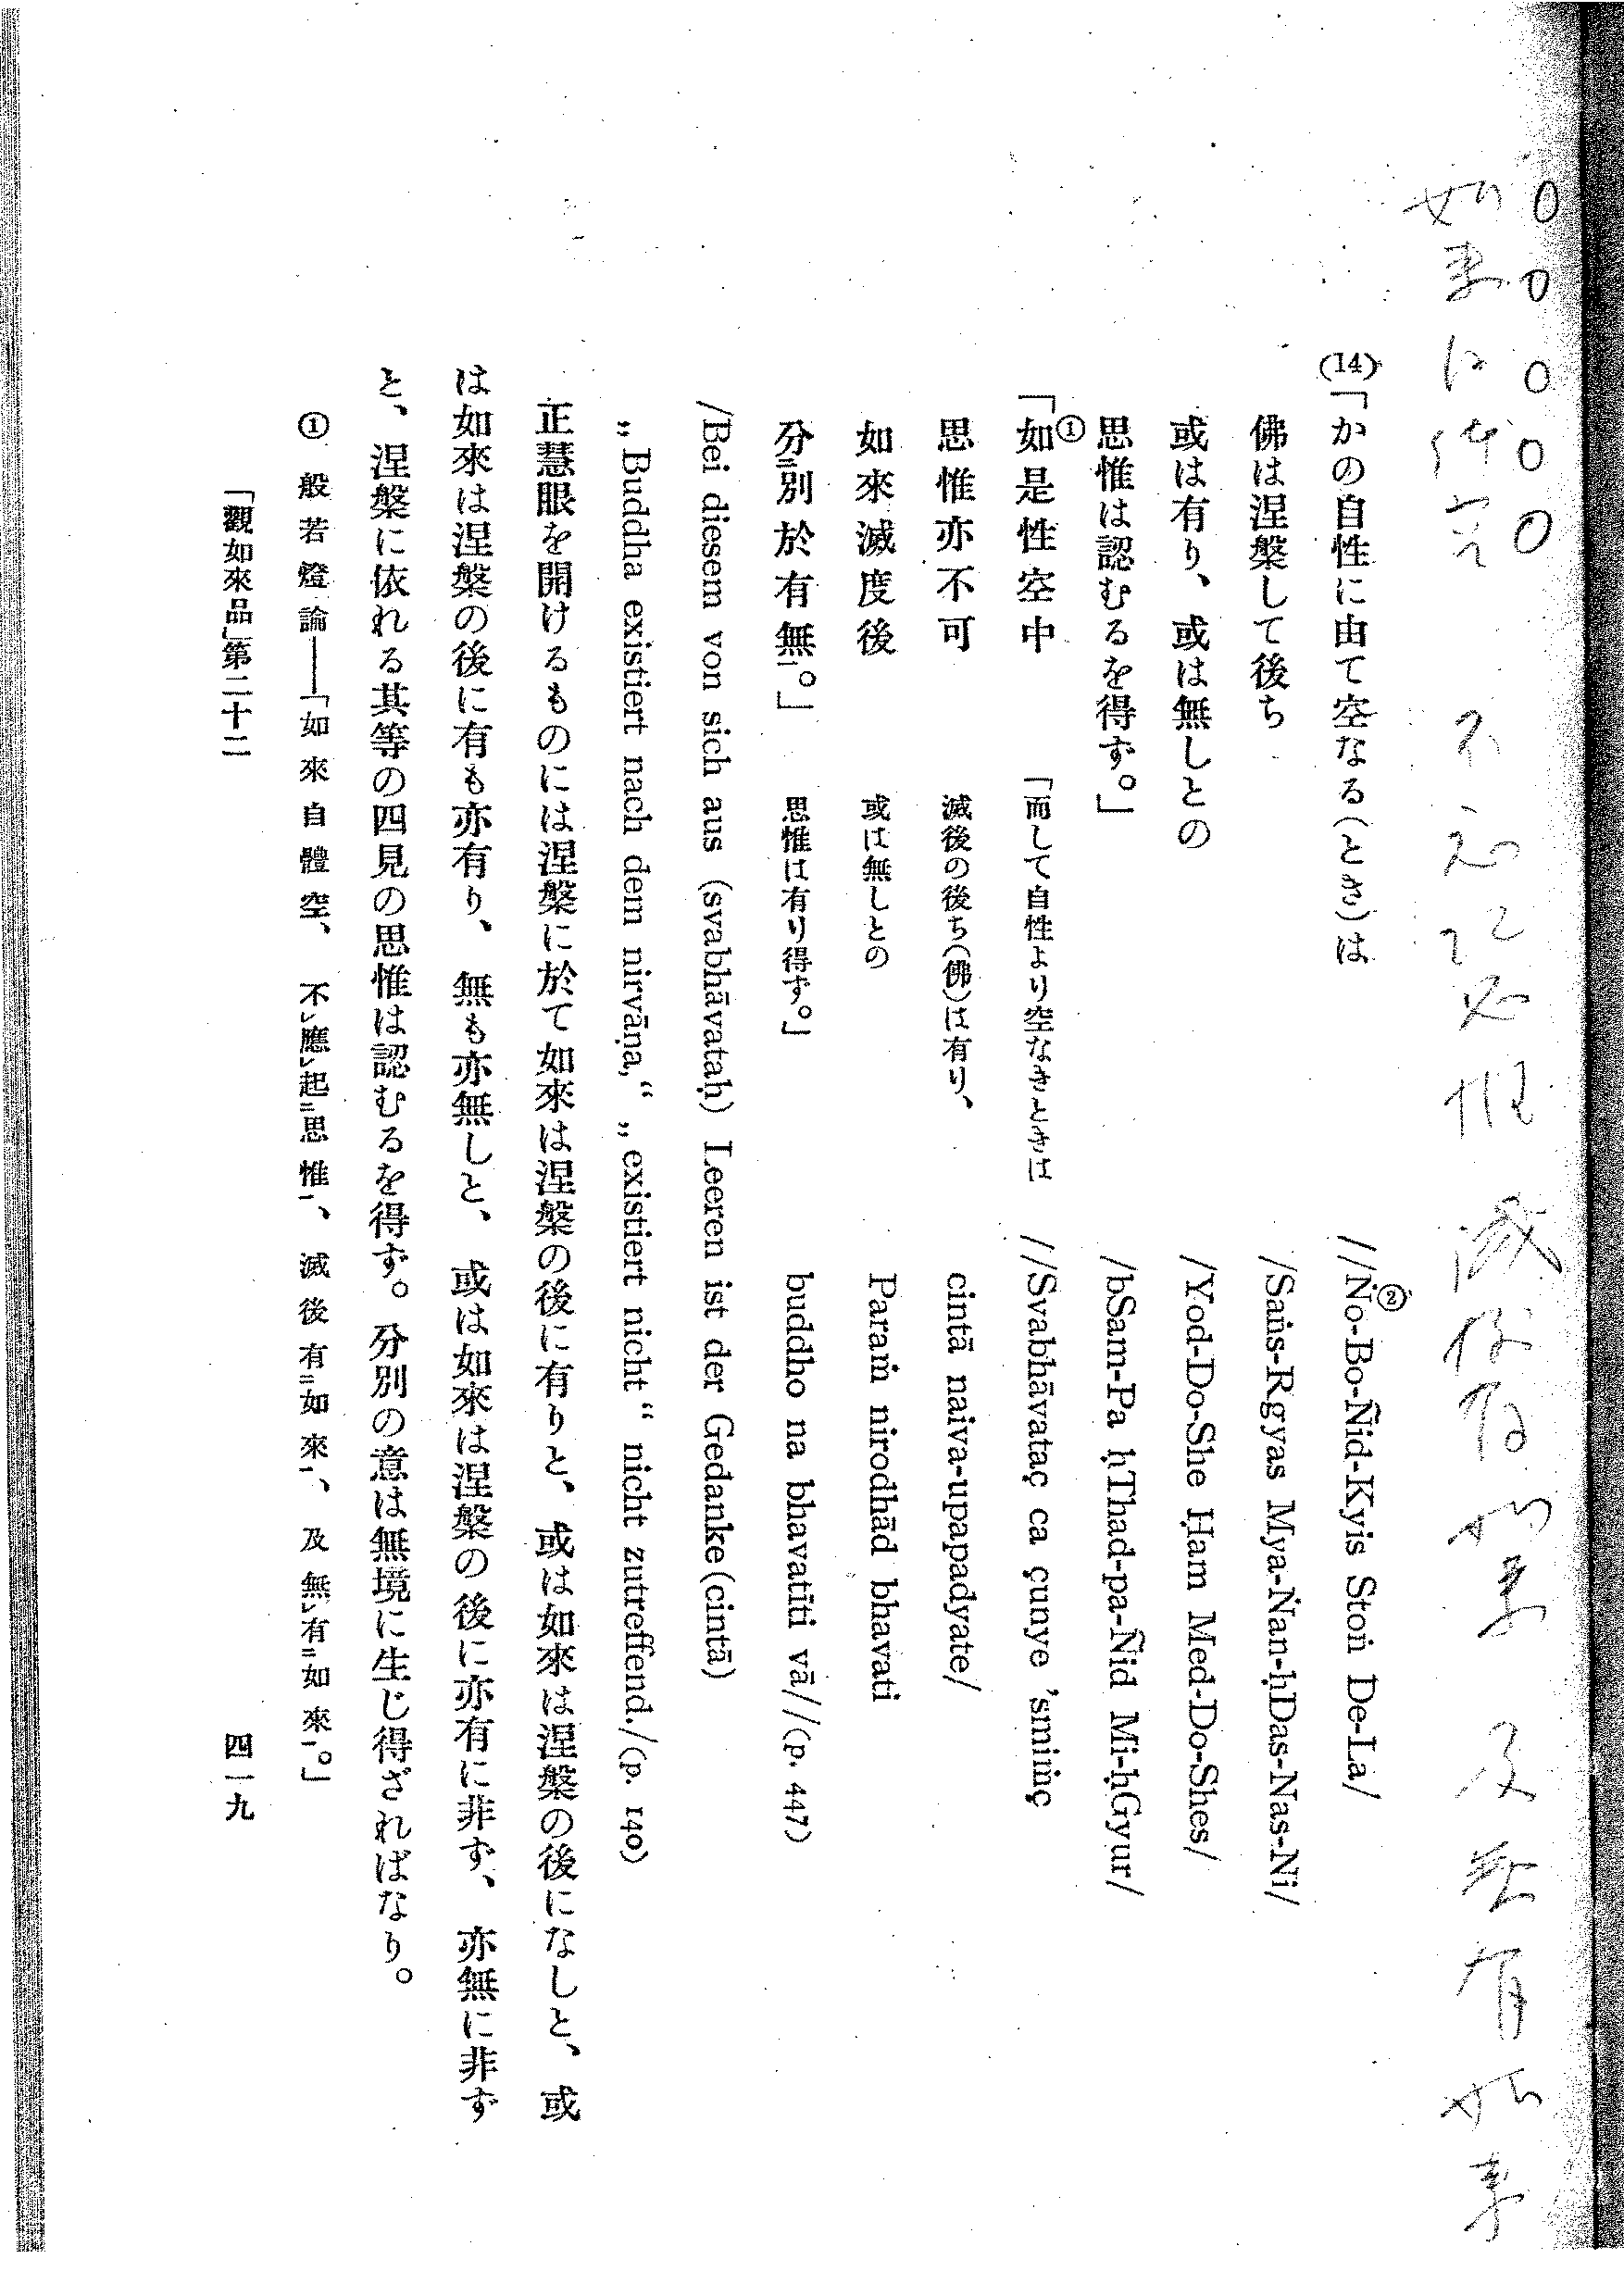 如来自体空 不應起思惟 滅後有如来 及無有如来
(14)「かの自性に由て空なる(とき)は
佛は涅槃して後ち
或は有り、或は無しとの
思惟は認むるを得ず。」
//Ṅo-Bo-Ñid-Kyis Stoṅ De-La/
②
/Saṅs-Rgyas Mya-Ṅan-ḥDas-Nas-Ni/
/Yod-Do-She Ḥam Med-Do-Shes/
/bSam-Pa ḥThad-pa-Ñid Mi-ḥGyur/
①
「如是性空中
思惟亦不可
如來滅度後
分﹦別於有無﹣。」
「而して自性より空なきときは
滅後の後ち(佛)は有り、
或は無しとの
思惟は有り得ず。」
//Svabhāvataç ca çunye 'smiṁç
cintā naiva-upapadyate/
Paraṁ nirodhād bhavati
buddho na bhavatīti vā//(p. 447)
/Bei diesem von sich aus (svabhāvataḥ) Leeren ist der Gedanke(cintā)
„Buddha existiert nach dem nirvāṇa,“ „existiert nicht“ nicht zutreffend./(p. 140)
正慧眼を開けるものには涅槃に於て如來は涅槃の後に有りと、或は如來は涅槃の後になしと、或
は如來は涅槃の後に有も亦有り、無も亦無しと、或は如來は涅槃の後に亦有に非ず、亦無に非ず
と、涅槃に依れる其等の四見の思惟は認むるを得ず。分別の意は無境に生じ得ざればなり。
① 般若燈論——「如來自體空、不レ應レ起﹦思惟﹣、滅後有﹦如來﹣、及無レ有﹦如來﹣。」
「觀如來品」第二十二
四一九